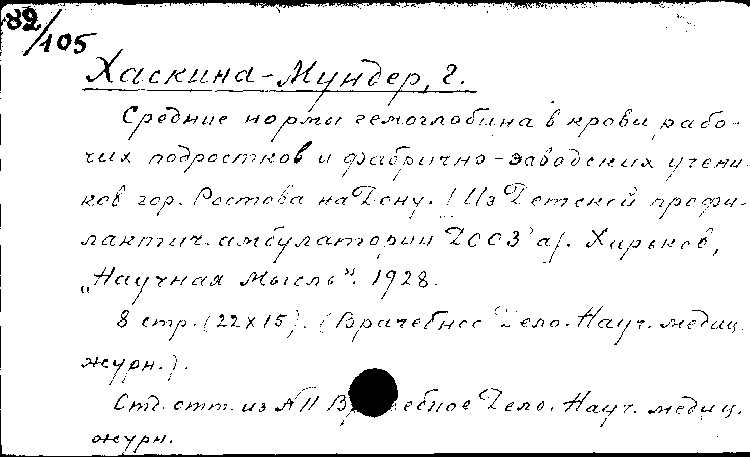 82/105
Хаскина-Мундер, г.
Средние нормы гемоглобина в крови рабо-
чих подростков и фабрично-заводских учени-
ков гор. Ростова на Дону. /Из Детской профи-
лактич. амбулатории ДООЗ'а/. Харьков,
„Научная Мысль". 1928.
8 стр. (22х15). (Врачебное Дело. Науч. медиц.
журн.).
Отд. отт. из №11 Врачебное Дело. Науч. медиц.
журн.